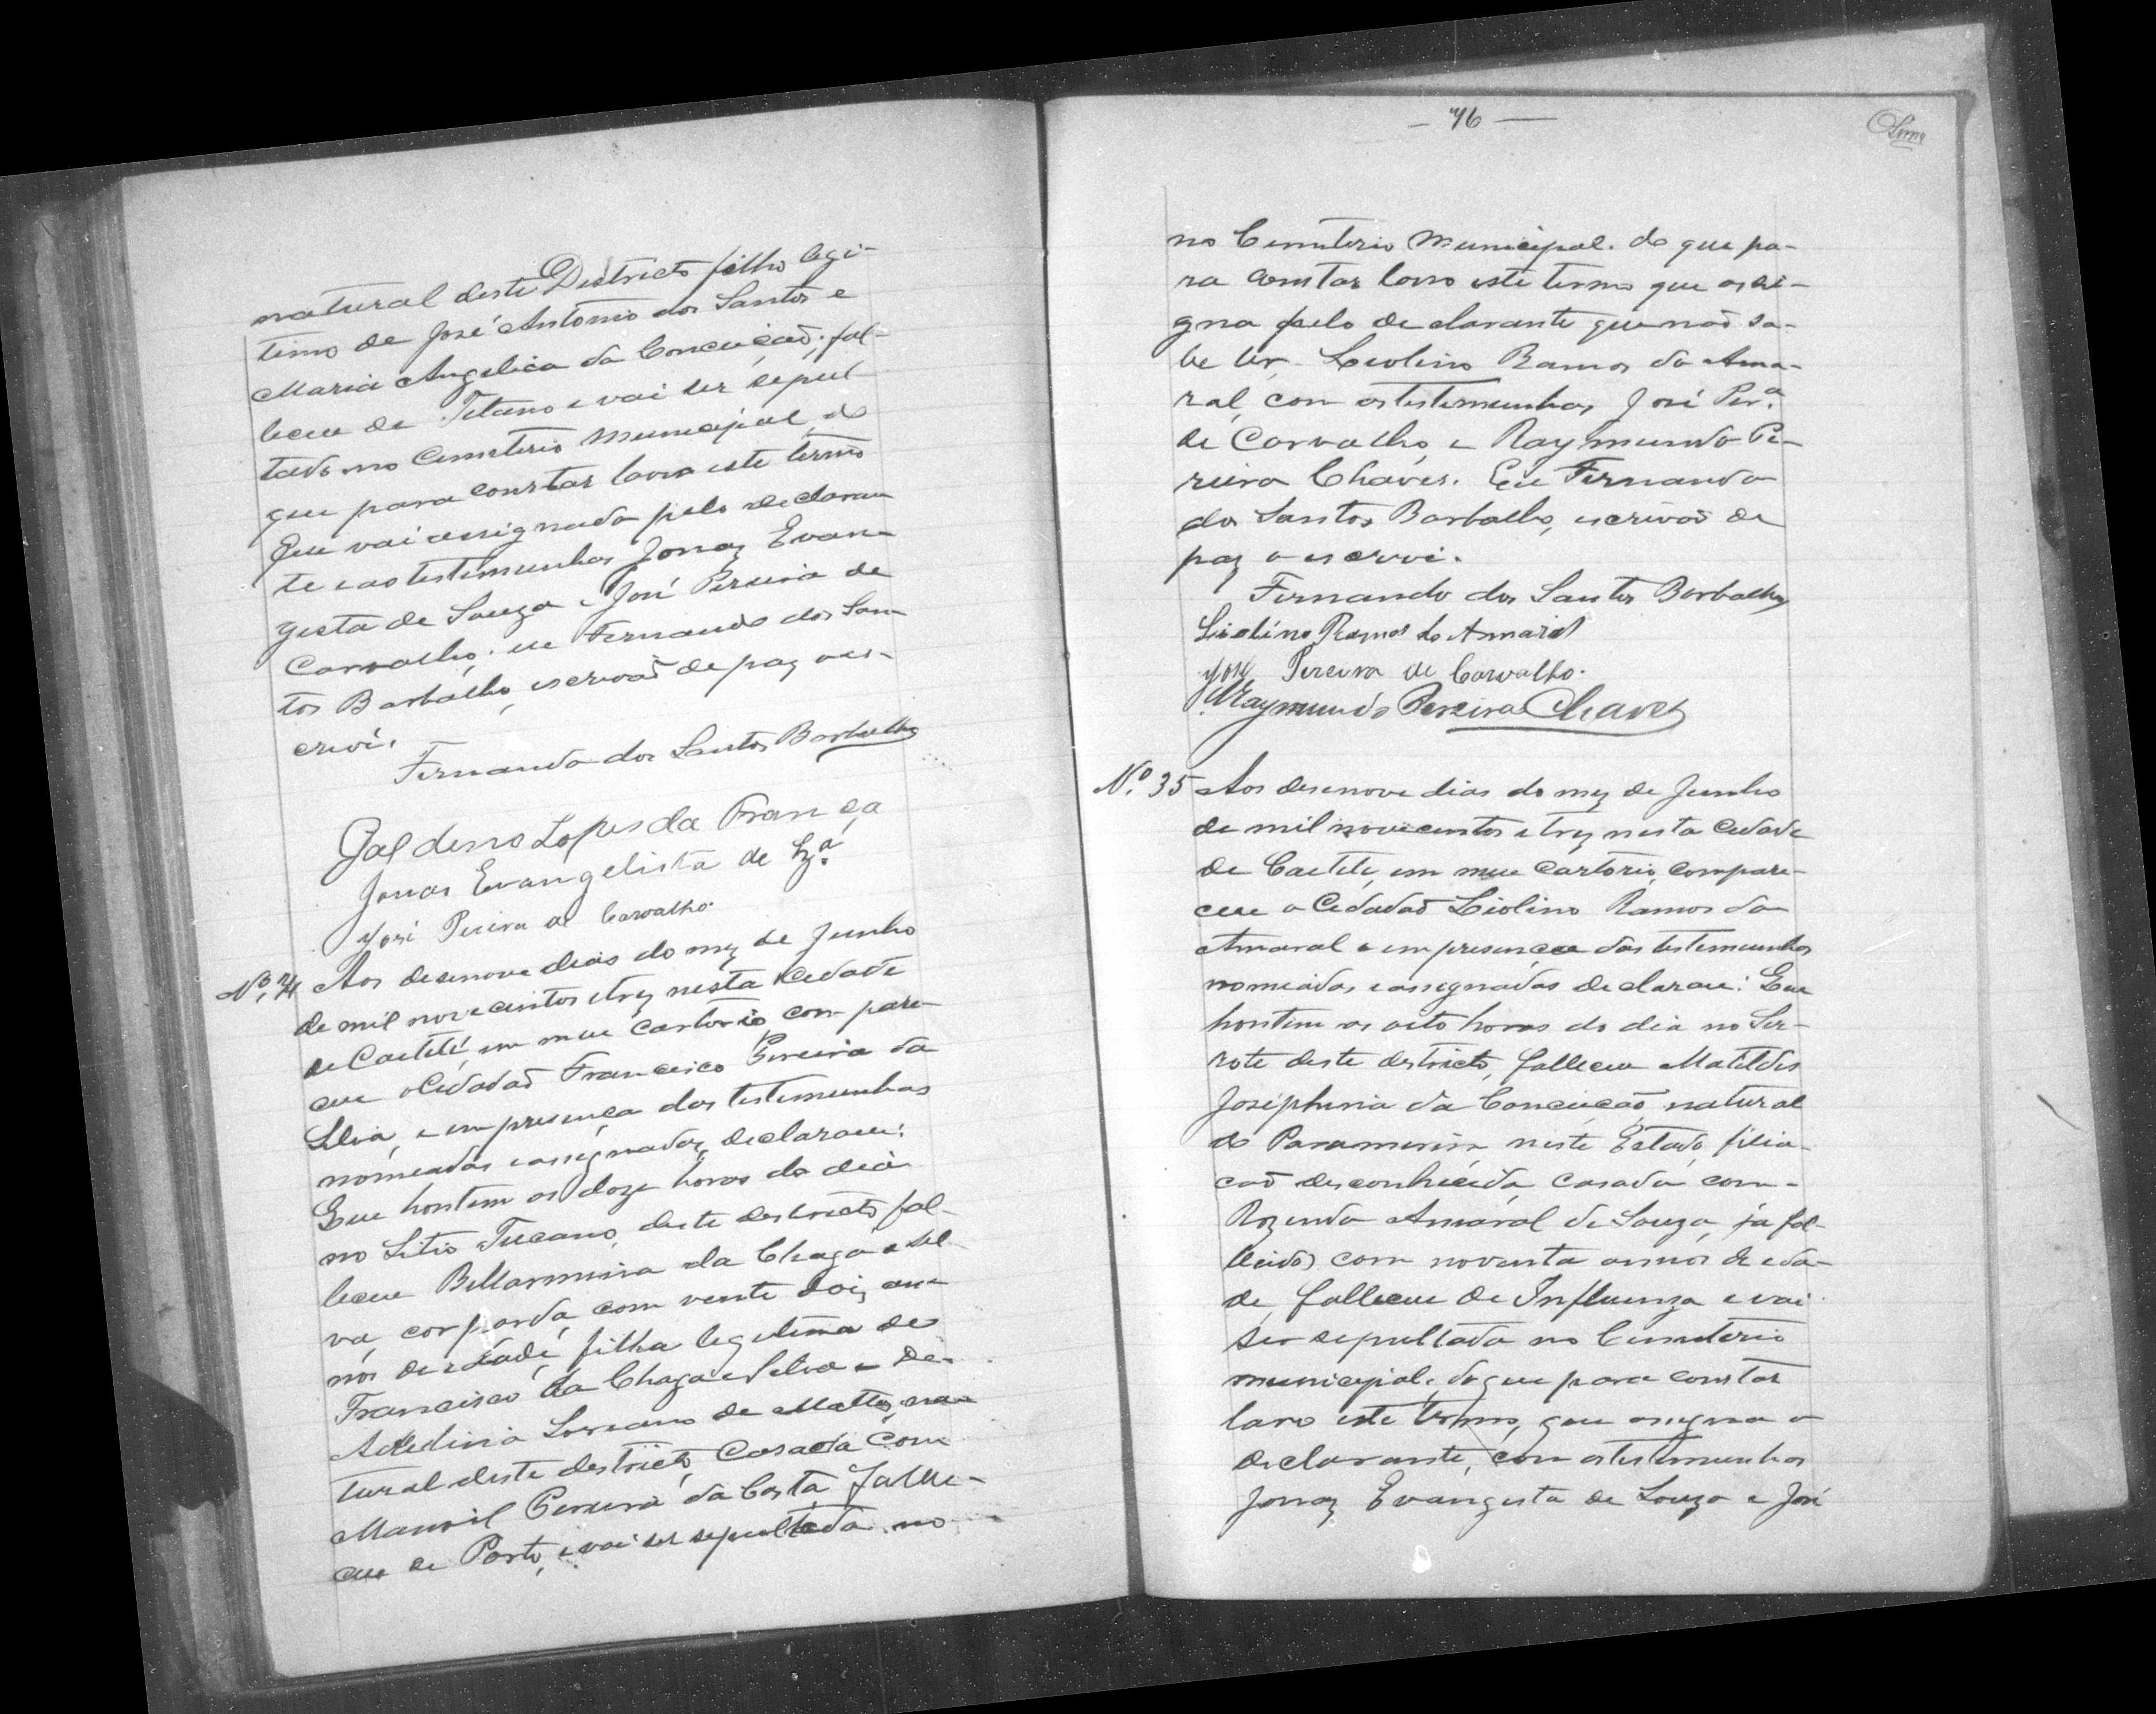 natural deste Districto filho legi-
timo de José Antonio dos Santos e
Maria Angelica da Conceição, fal-
leceu de Tetano e vai ser sepul
tado no Cemeterio Municipal, do
que para constar lavro este termo
Que vai assignado pelo declaran
te e as testemunhas Jonaz Evan-
gesta de Souza e José Pereira de
Carvalho; eu Fernando dos San
tos Barbalho, escrivão de paz o es-
crevi.
Fernando dos Santos Barbalho
Galdino Lopes da França
Jonas Evangelista de Sza.
José Pereira de Carvalho.
Nº. 34 Aos desenove dias do mez de Junho
de mil novecentos e trez nesta Cedade
de Caeteté, em meu Cartorio, compare-
ceu o Cidadão Francisco Pereira da
Silva, e em presença das testemunhas
nomeadas e assignadas, declarou:
Que hontem as doze horas do dia
no Sitio Tucano, deste destricto, fal-
leceu Bellarmina da Chaga e Sil
va, cor parda, com vente doiz an-
nos de edade, filha legitima de
Francisco da Chaga e Silva e De-
Adedina Loreano de Mattos, na-
tural deste destricto, Casada com
Manoil Pereira da Costa, falle-
ceu de Parto, e vai ser sepultada no
76
no Cemiterio Municipal. do que pa-
ra constar lavro este termo que assi-
gna pelo declarante que não sa-
be ler, Liolino Ramos do Ama-
ral, com as testemunhas José Per.ª
de Carvalho, e Raymundo Pe-
reira Chaves. Eu Fernando
dos Santos Barbalho, escrivão de
paz o escrevi.
Fernando dos Santos Barbalho
Liolino Ramos do Amaral
José Pereira de Carvalho.
Raymundo Pereira Chaves
Nº. 35 Aos desenove dias do mez de Junho
de mil novecentos e trez nesta Cedade
de Caeteté, em meu Cartorio, compare-
ceu o Cidadão Liolino Ramos do
Amaral e em presença das testemunhas
nomeadas e assignadas declarou: Que
hontem as oito horas do dia no Ser-
rote deste destricto, falleceu Matildes
Josephina da Conceição, natural
do Paramerim, neste Estado, filia-
ção desconhecida, casada com-
Rozendo Amaral de Souza, já fal-
lecido, com noventa annos de eda-
de, falleceu de Influenza e vai
ser sepultada no Cemeterio
municipal. do que para constar
lavro este termo, que assigna o
declarante, com as testemunhas
Jonaz Evangesta de Souza e José